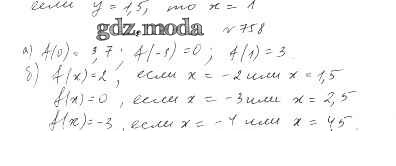 если y = 1,5, то x = 1
gdz.moda
№ 758
а) f(0) = 3,7; f(-1) = 0; f(1) = 3
б) f(x) = 2, если x = -2 или x = 1,5
f(x) = 0, если x = -3 или x = 2,5
f(x) = -3, если x = -4 или x = 4,5.